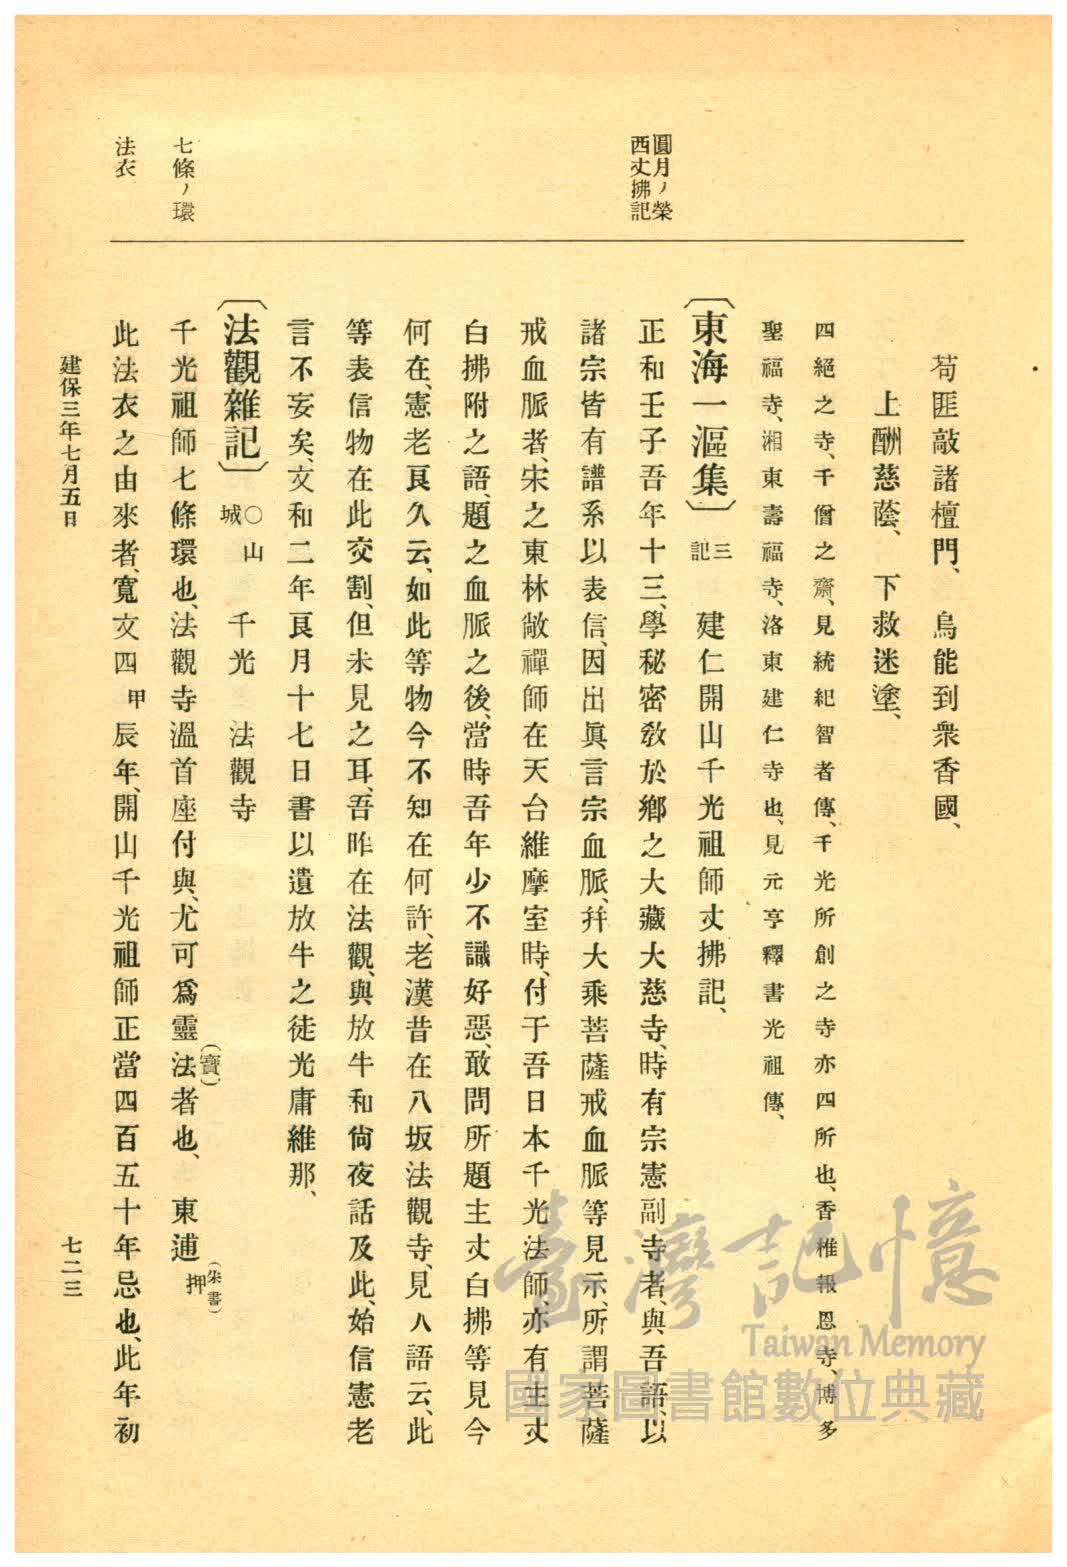 圓月ノ榮
西丈拂記
七條ノ環
法衣
苟匪敲諸檀門、烏能到衆香國、
上酬慈蔭、下救迷塗、
四絕之寺、千僧之齋、見統紀智者傳、千光所創之寺亦四所也、香椎報恩寺、博多
聖福寺、湘東壽福寺、洛東建仁寺也、見元亨釋書光祖傳、
〔東海一漚集〕三記 建仁開山千光祖師丈拂記、
正和壬子吾年十三、學秘密敎於鄕之大藏大慈寺、時有宗憲副寺者、與吾語、以
諸宗皆有譜系以表信、因出眞言宗血脈、幷大乘菩薩戒血脈等見示、所謂菩薩
戒血脈者、宋之東林敞禪師在天台維摩室時、付于吾日本千光法師、亦有主丈
白拂附之語、題之血脈之後、當時吾年少不識好惡、敢問所題主丈白拂等見今
何在、憲老良久云、如此等物今不知在何許、老漢昔在八坂法觀寺、見八語云、此
等表信物在此交割、但未見之耳、吾昨在法觀、與放牛和尙夜話及此、始信憲老
言不妄矣、文和二年良月十七日書以遺放牛之徒光庸維那、
〔法觀雜記〕○山城 千光 法觀寺
千光祖師七條環也、法觀寺溫首座付與、尤可爲靈法(寶)者也、 東逋 押(朱書)
此法衣之由來者、寬文四甲辰年、開山千光祖師正當四百五十年忌也、此年初
建保三年七月五日
七二三
臺灣記憶
Taiwan Memory
國家圖書館數位典藏